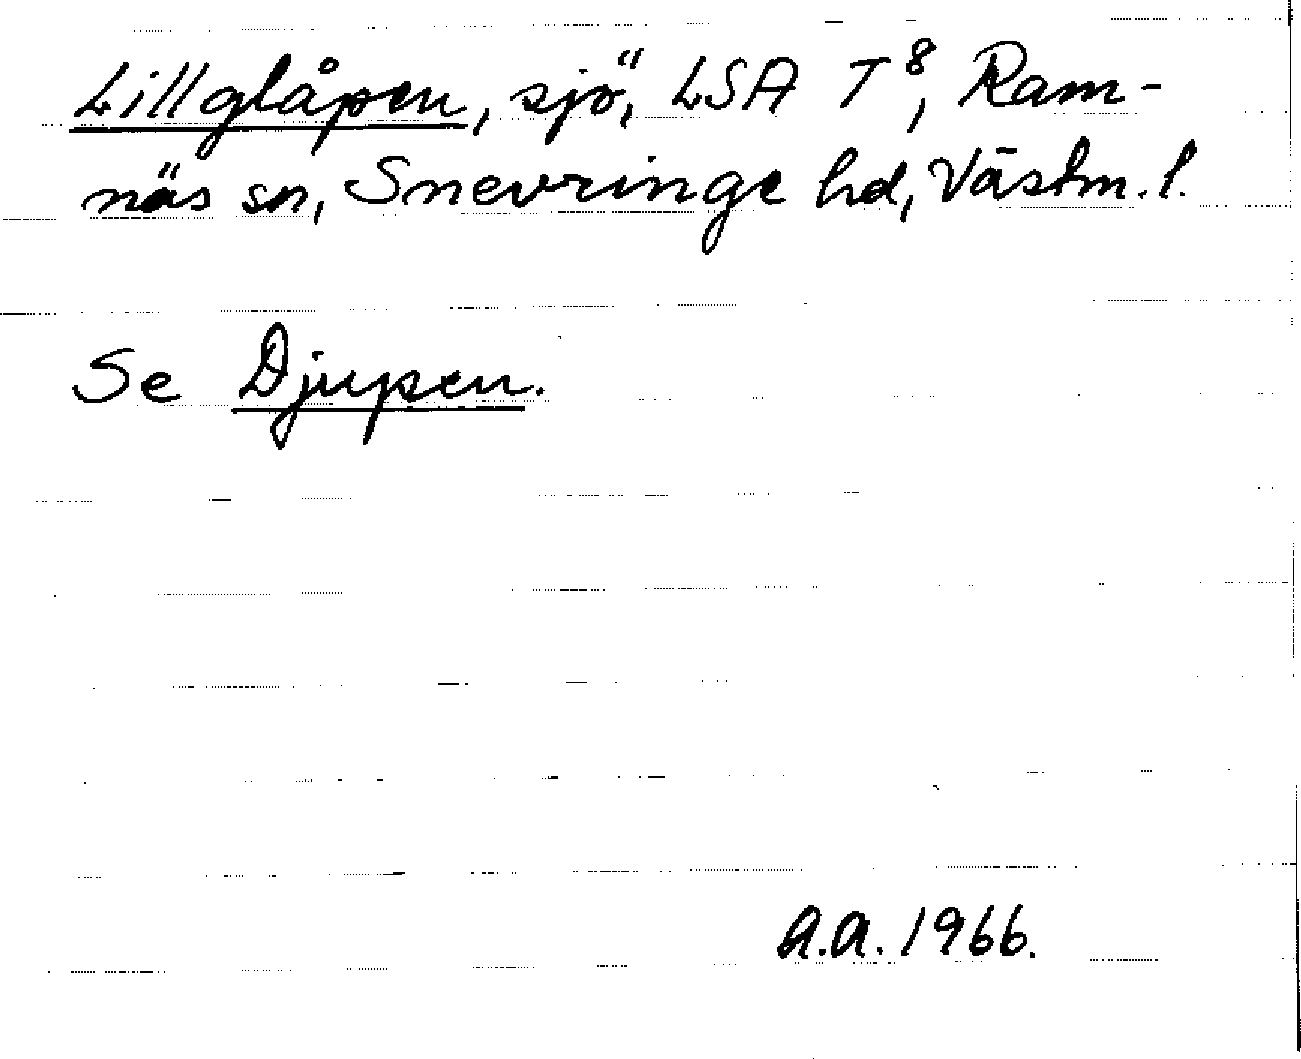 Lillglåpen, sjö, LSA T⁸, Ram-
näs sn, Snevringe hd, Västm. l.
Se Djupen.
A.A. 1966.